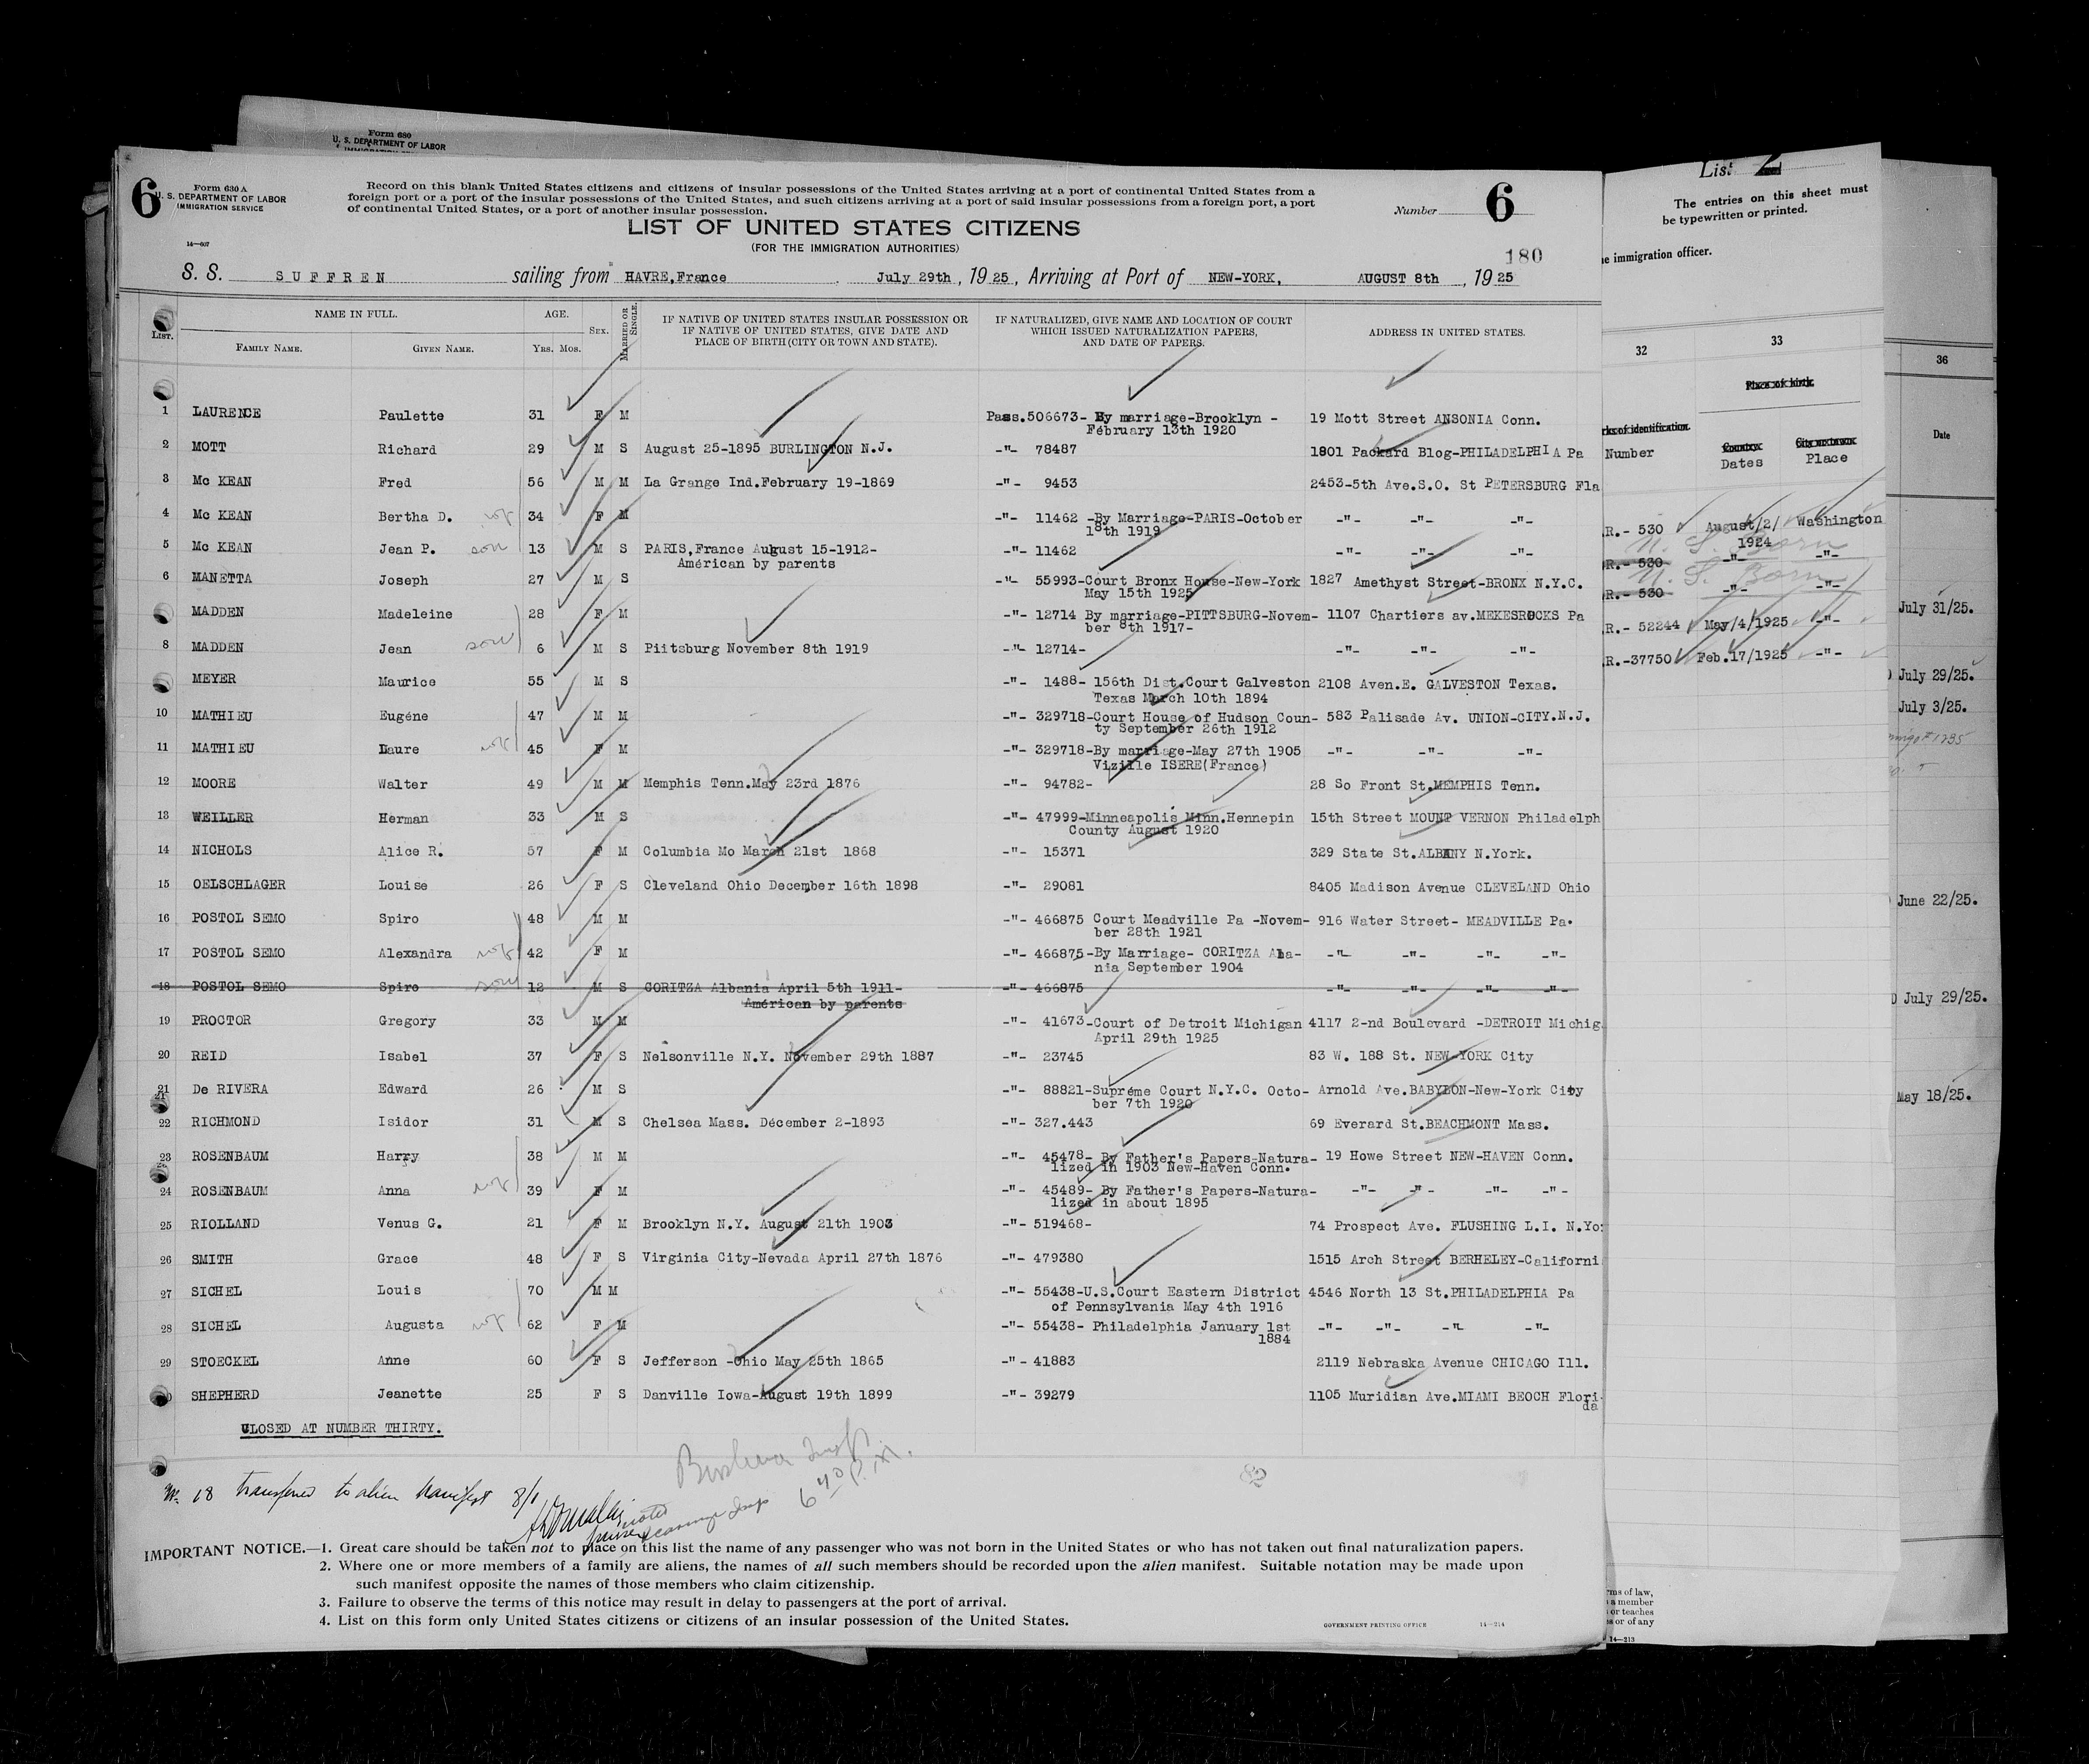 Form 680
U. S. DEPARTMENT OF LABOR
6
Form 630 A
U. S. DEPARTMENT OF LABOR
IMMIGRATION SERVICE
14—607
Record on this blank United States citizens and citizens of insular possessions of the United States arriving at a port of continental United States from a
foreign port or a port of the insular possessions of the United States, and such citizens arriving at a port of said insular possessions from a foreign port, a port
of continental United States, or a port of another insular possession.
Number 6
LIST OF UNITED STATES CITIZENS
(FOR THE IMMIGRATION AUTHORITIES)
180
S. S. SUFFREN sailing from HAVRE,France July 29th, 1925, Arriving at Port of NEW-YORK, AUGUST 8th, 1925
LIST. NAME IN FULL. AGE. SEX. MARRIED OR SINGLE. IF NATIVE OF UNITED STATES INSULAR POSSESSION OR IF NATIVE OF UNITED STATES, GIVE DATE AND PLACE OF BIRTH (CITY OR TOWN AND STATE). IF NATURALIZED, GIVE NAME AND LOCATION OF COURT WHICH ISSUED NATURALIZATION PAPERS, AND DATE OF PAPERS. ADDRESS IN UNITED STATES.
FAMILY NAME. GIVEN NAME. Yrs. Mos.
1 LAURENCE Paulette 31 F M Pass.506673- By marriage-Brooklyn - 19 Mott Street ANSONIA Conn.
February 13th 1920
2 MOTT Richard 29 M S August 25-1895 BURLINGTON N.J. -"- 78487 1801 Packard Blog-PHILADELPHIA Pa
3 Mc KEAN Fred 56 M M La Grange Ind.February 19-1869 -"- 9453 2453-5th Ave.S.O. St PETERSBURG Fla
4 Mc KEAN Bertha D. wf 34 F M -"- 11462 -By Marriage-PARIS-October -"- -"- -"-
18th 1919
5 Mc KEAN Jean P. son 13 M S PARIS,France August 15-1912- -"- 11462 -"- -"- -"-
Américan by parents
6 MANETTA Joseph 27 M S -"- 55993-Court Bronx House-New-York 1827 Amethyst Street-BRONX N.Y.C.
May 15th 1925
MADDEN Madeleine 28 F M -"- 12714 By marriage-PITTSBURG-Novem- 1107 Chartiers av.MEKESROCKS Pa
ber 8th 1917-
8 MADDEN Jean son 6 M S Piitsburg November 8th 1919 -"- 12714- -"- -"- -"-
MEYER Maurice 55 M S -"- 1488- 156th Dist.Court Galveston 2108 Aven.E. GALVESTON Texas.
Texas March 10th 1894
10 MATHIEU Eugéne 47 M M -"- 329718-Court House of Hudson Coun- 583 Palisade Av. UNION-CITY.N.J.
ty September 26th 1912
11 MATHIEU Laure wf 45 F M -"- 329718-By marriage-May 27th 1905 -"- -"- -"-
Vizille ISERE(France)
12 MOORE Walter 49 M M Memphis Tenn.May 23rd 1876 -"- 94782- 28 So Front St.MEMPHIS Tenn.
13 WEILLER Herman 33 M S -"- 47999-Minneapolis Minn.Hennepin 15th Street MOUNT VERNON Philadelph
County August 1920
14 NICHOLS Alice R. 57 F M Columbia Mo March 21st 1868 -"- 15371 329 State St.ALBANY N.York.
15 OELSCHLAGER Louise 26 F S Cleveland Ohio December 16th 1898 -"- 29081 8405 Madison Avenue CLEVELAND Ohio
16 POSTOL SEMO Spiro 48 M M -"- 466875 Court Meadville Pa -Novem- 916 Water Street- MEADVILLE Pa.
ber 28th 1921
17 POSTOL SEMO Alexandra wf 42 F M -"- 466875-By Marriage- CORITZA Alba- -"- -"- -"- -"-
nia September 1904
18 POSTOL SEMO Spiro son 12 M S CORITZA Albania April 5th 1911- -"- 466875 -"- -"- -"- -"-
Américan by parents
19 PROCTOR Gregory 33 M M -"- 41673-Court of Detroit Michigan 4117 2-nd Boulevard -DETROIT Michig
April 29th 1925
20 REID Isabel 37 F S Nelsonville N.Y. November 29th 1887 -"- 23745 83 W. 188 St. NEW-YORK City
21 De RIVERA Edward 26 M S -"- 88821-Supréme Court N.Y.C. Octo- Arnold Ave.BABYLON-New-York City
ber 7th 1920
22 RICHMOND Isidor 31 M S Chelsea Mass. Décember 2-1893 -"- 327.443 69 Everard St.BEACHMONT Mass.
23 ROSENBAUM Harry 38 M M -"- 45478- By Father's Papers-Natura- 19 Howe Street NEW-HAVEN Conn.
lized in 1903 New-Haven Conn.
24 ROSENBAUM Anna wf 39 F M -"- 45489- By Father's Papers-Natura- -"- -"- -"- -"-
lized in about 1895
25 RIOLLAND Venus G. 21 F M Brooklyn N.Y. August 21th 1903 -"- 519468- 74 Prospect Ave. FLUSHING L.I. N.Yo
26 SMITH Grace 48 F S Virginia City-Nevada April 27th 1876 -"- 479380 1515 Arch Street BERHELEY-Californi
27 SICHEL Louis 70 M M -"- 55438-U.S.Court Eastern District 4546 North 13 St.PHILADELPHIA Pa
of Pennsylvania May 4th 1916
28 SICHEL Augusta wf 62 F M -"- 55438- Philadelphia January 1st -"- -"- -"- -"-
1884
29 STOECKEL Anne 60 F S Jefferson -Ohio May 25th 1865 -"- 41883 2119 Nebraska Avenue CHICAGO Ill.
SHEPHERD Jeanette 25 F S Danville Iowa-August 19th 1899 -"- 39279 1105 Muridian Ave.MIAMI BEOCH Flori-
da
CLOSED AT NUMBER THIRTY.
82
18 transferred to alien manifest 8/1
6 40 P.M.
IMPORTANT NOTICE.—1. Great care should be taken not to place on this list the name of any passenger who was not born in the United States or who has not taken out final naturalization papers.
2. Where one or more members of a family are aliens, the names of all such members should be recorded upon the alien manifest. Suitable notation may be made upon
such manifest opposite the names of those members who claim citizenship.
3. Failure to observe the terms of this notice may result in delay to passengers at the port of arrival.
4. List on this form only United States citizens or citizens of an insular possession of the United States.
GOVERNMENT PRINTING OFFICE 14—214
List 2
The entries on this sheet must
be typewritten or printed.
immigration officer.
32 33
Place of birth.
rks of identification.
Country. City or town.
Number Dates Place
R.- 530 August/2/ Washington
1924
U. S. Born
R.- 530 -"- -"-
U. S. Born
R.- 530 -"- -"-
R.- 52244 May/4/1925 -"-
R.-37750 Feb.17/1925 -"-
rms of law,
a member
or teaches
s or of any
14—213
36
Date
July 31/25.
July 29/25.
July 3/25.
June 22/25.
July 29/25.
May 18/25.